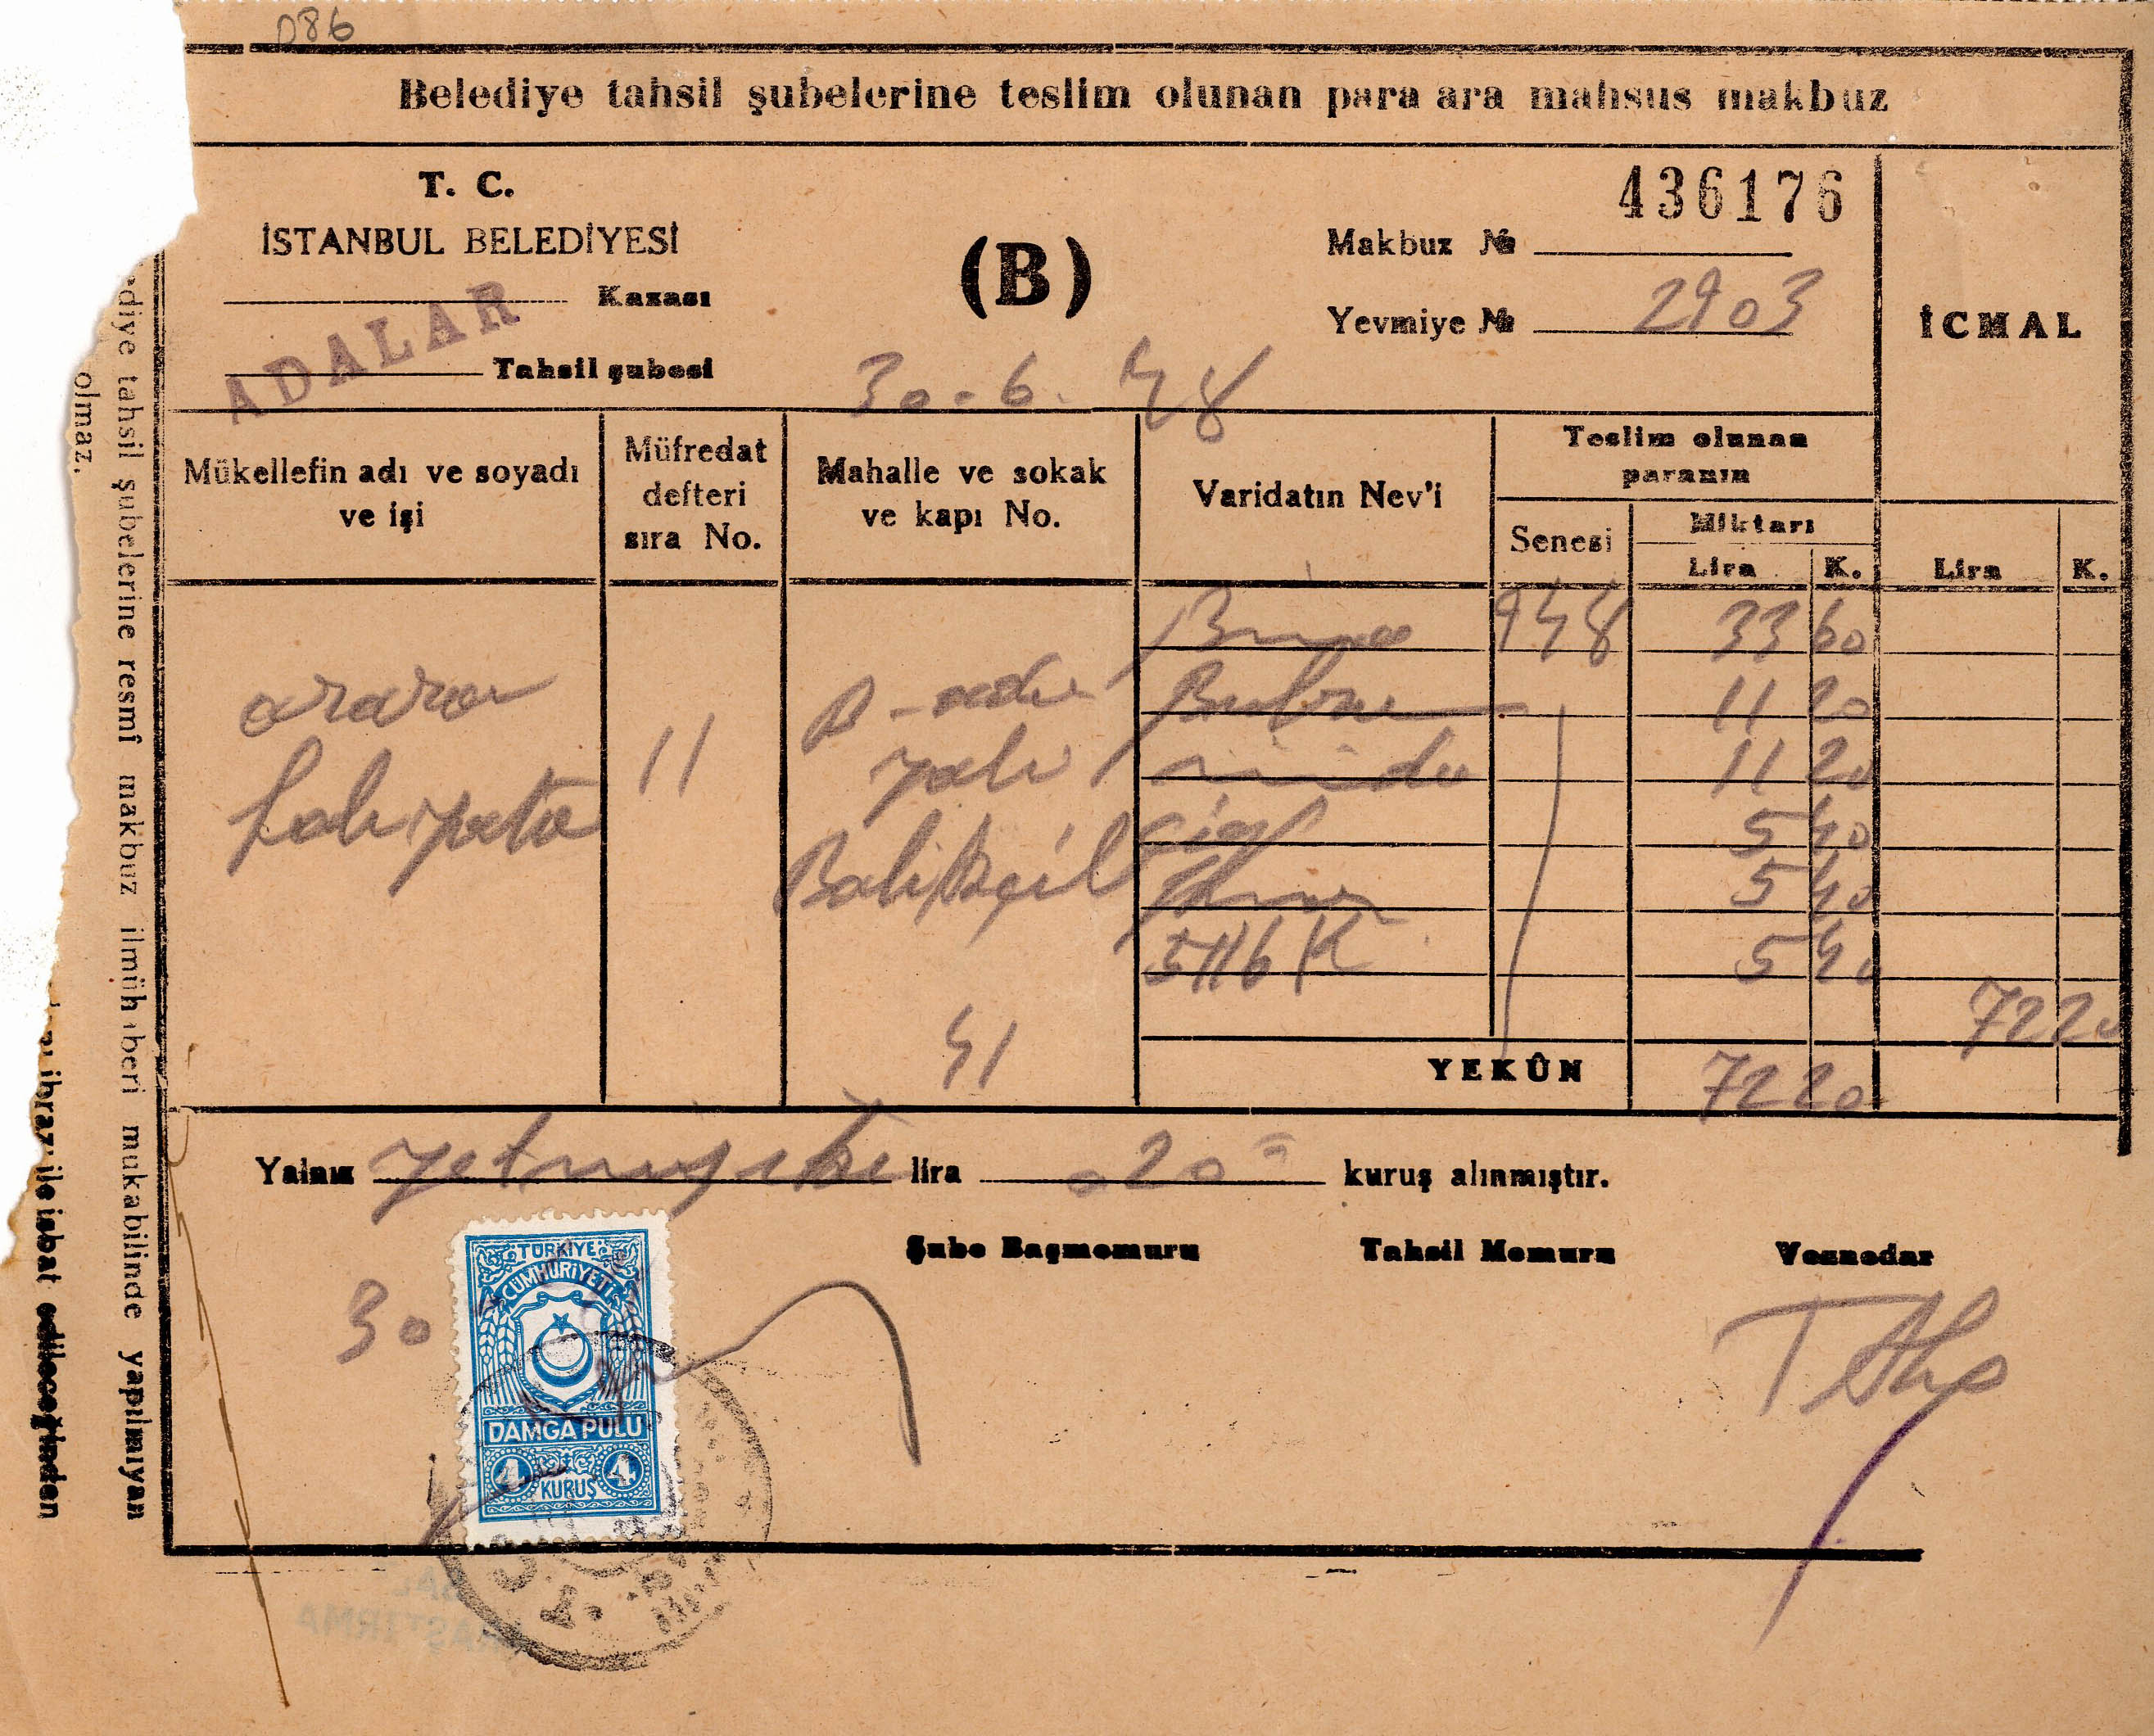 086
Belediye tahsil şubelerine teslim olunan para ara mahsus makbuz
T. C.
İSTANBUL BELEDİYESİ
Kazası
ADALAR
Tahsil şubesi
(B)
30-6-48
436176
Makbuz №
Yevmiye № 2903
İCMAL
Mükellefin adı ve soyadı ve işi
Müfredat defteri sıra No.
Mahalle ve sokak ve kapı No.
Varidatın Nev'i
Teslim olunan paranın
Senesi
Miktarı
Lira K.
Lira K.
Bina 948 33 60
11 20
11 20
5 40
5 40
5116 K 5 40
11
B-ada
yalı
41
72 20
YEKÛN 72 20
Yalnız yetmişiki lira 20 kuruş alınmıştır.
Şube Başmemuru Tahsil Memuru Veznedar
30
TÜRKİYE
CÜMHURİYETİ
DAMGA PULU
4 4
KURUŞ
diye tahsil şubelerine resmî makbuz ilmühaberi mukabilinde yapılmıyan
olmaz.
ibrazı ile isbat edileceğinden